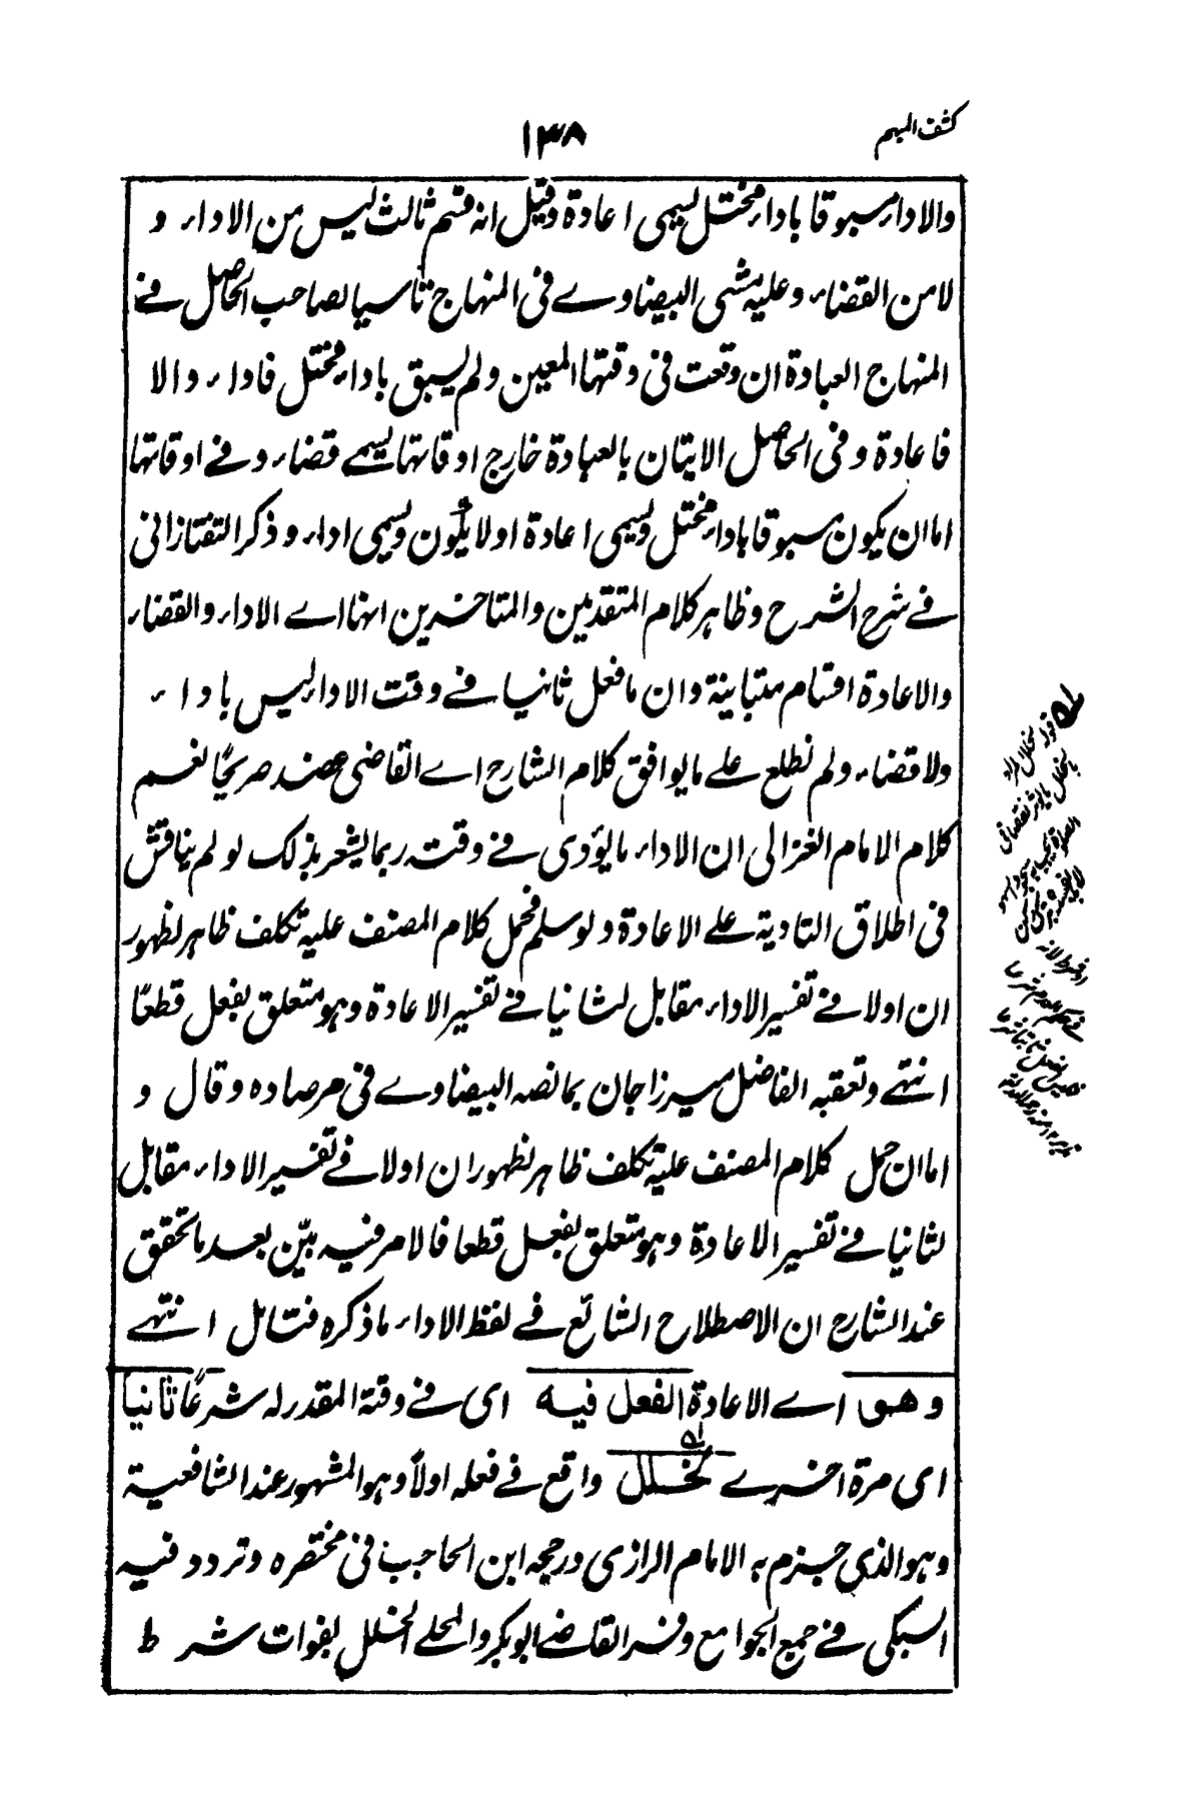 كشف المبهم
١٣٨
والاداء مسبوقا باداء مختل يسمى اعادة وقيل انه قسم ثالث ليس من الاداء و
لا من القضاء وعليه مشى البيضاوے فى المنهاج تاسيا لصاحب الحاصل فے
المنهاج العبادة ان وقعت فى وقتها المعين ولم يسبق باداء مختل فاداء والا
فاعادة وفى الحاصل الاتيان بالعبادة خارج اوقاتها يسمے قضاء وفے اوقاتها
اما ان يكون مسبوقا باداء مختل ويسمى اعادة اولا يكون ويسمى اداء وذكر التفتازانى
فے شرح الشرح وظاهر كلام المتقدمين والمتاخرين انها اے الاداء والقضاء
والاعادة اقسام متباينة وان ما فعل ثانيا فے وقت الاداء ليس باداء
ولا قضاء ولم نطلع علے ما يوافق كلام الشارح اے القاضى عضد صريحًا نعم
كلام الامام الغزالى ان الاداء ما يؤدى فے وقته ربما يشعر بذلك لو لم يناقش
فى اطلاق التادية علے الاعادة ولو سلم فحمل كلام المصنف عليه تكلف ظاهر لظهور
ان اولا فے تفسير الاداء مقابل لثانيا فے تفسير الاعادة وهو متعلق بفعل قطعًا
انتهے وتعقبه الفاضل ميرزاجان بما نصه البيضاوے فى مرصاده وقال و
اما ان حمل كلام المصنف عليه تكلف ظاهر لظهور ان اولا فے تفسير الاداء مقابل
لثانيا فے تفسير الاعادة وهو متعلق بفعل قطعا فالامر فيه بيّن بعد ما تحقق
عند الشارح ان الاصطلاح الشائع فے لفظ الاداء ما ذكره فتامل انتهے
وهو اے الاعادة الفعل فيه اى فے وقته المقدر له شرعًا ثانيا
اى مرة اخرے لخلل واقع فے فعله اولاً وهو المشهور عند الشافعية
وهو الذى جزم به الامام الرازى ورجحه ابن الحاجب فى مختصره وتردد فيه
السبكى فے جمع الجوامع وفسر القاضے ابو بكر والمحلے الخلل بفوات شرط
قوله لخلل المراد